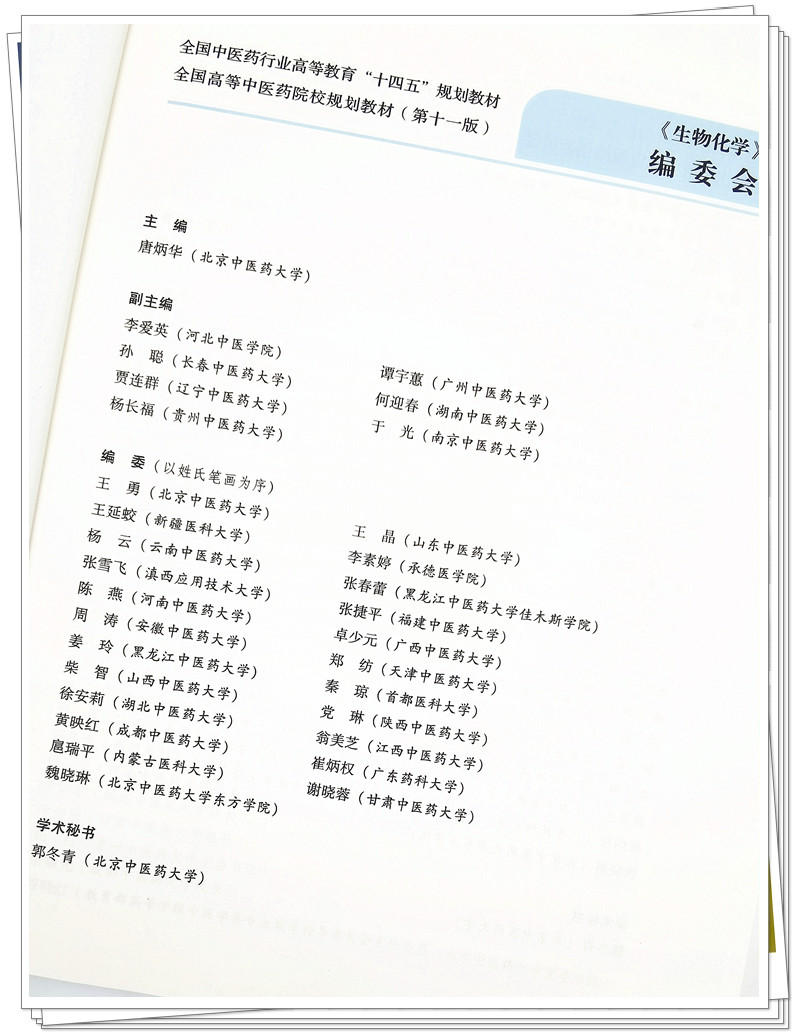 全国中医药行业高等教育“十四五”规划教材
全国高等中医药院校规划教材（第十一版）
《生物化学》
编委会
主 编
唐炳华（北京中医药大学）
副主编
李爱英（河北中医学院）
孙 聪（长春中医药大学） 谭宇蕙（广州中医药大学）
贾连群（辽宁中医药大学） 何迎春（湖南中医药大学）
杨长福（贵州中医药大学） 于 光（南京中医药大学）
编 委（以姓氏笔画为序）
王 勇（北京中医药大学） 王 晶（山东中医药大学）
王延蛟（新疆医科大学） 李素婷（承德医学院）
杨 云（云南中医药大学） 张春蕾（黑龙江中医药大学佳木斯学院）
张雪飞（滇西应用技术大学） 张捷平（福建中医药大学）
陈 燕（河南中医药大学） 卓少元（广西中医药大学）
周 涛（安徽中医药大学） 郑 纺（天津中医药大学）
姜 玲（黑龙江中医药大学） 秦 琼（首都医科大学）
柴 智（山西中医药大学） 党 琳（陕西中医药大学）
徐安莉（湖北中医药大学） 翁美芝（江西中医药大学）
黄映红（成都中医药大学） 崔炳权（广东药科大学）
扈瑞平（内蒙古医科大学） 谢晓蓉（甘肃中医药大学）
魏晓琳（北京中医药大学东方学院）
学术秘书
郭冬青（北京中医药大学）